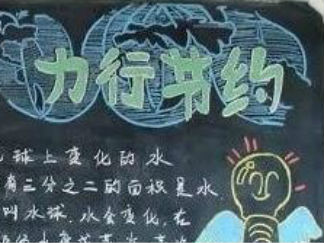 力行节约
球上变化的水
有三分之二的面积是水
叫水球,水会变化,在